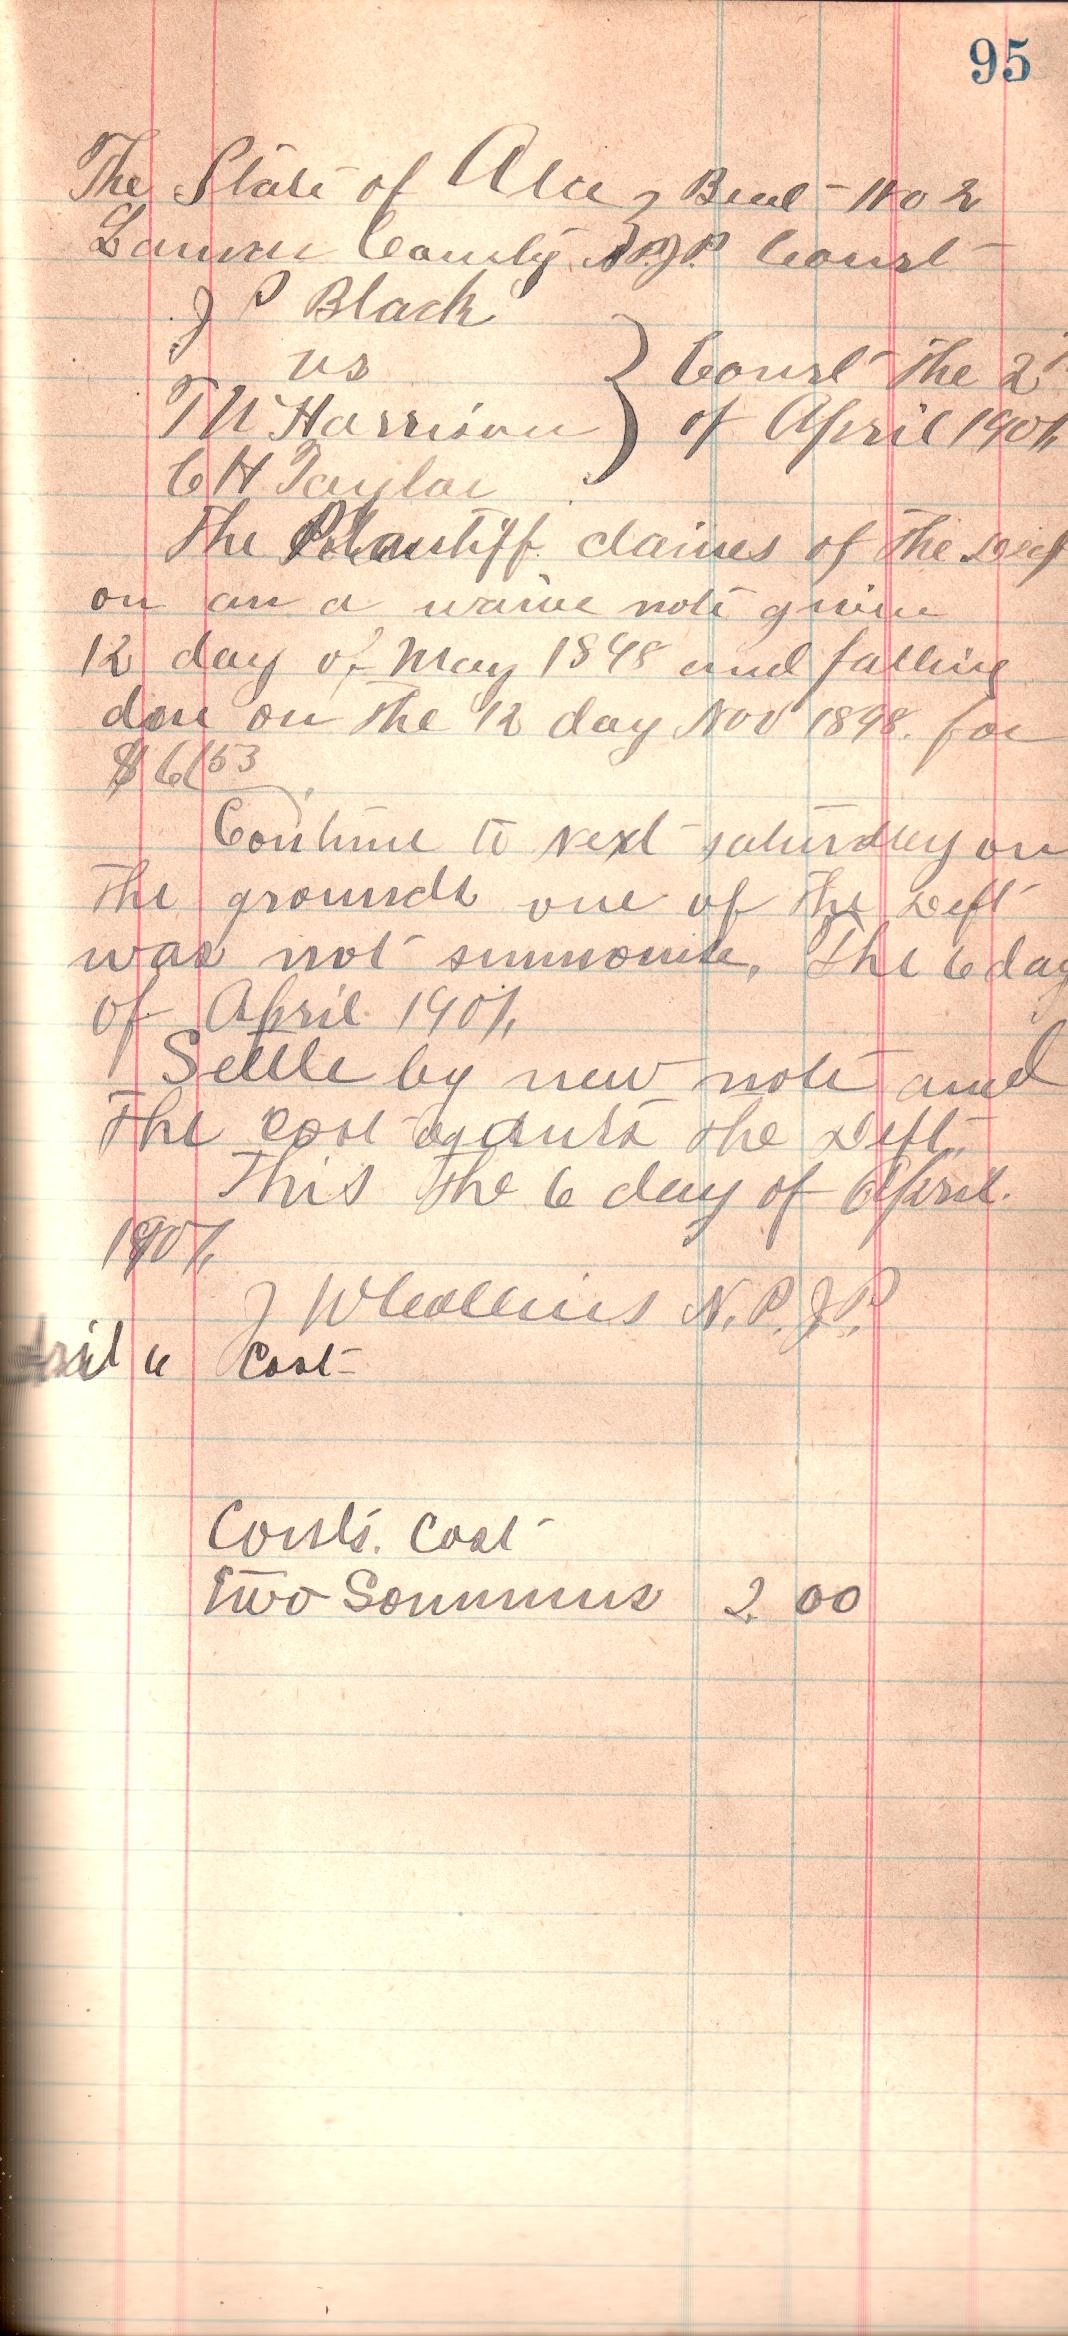 95
The State of Ala } Beat No 2
Lamar County } N.P.J.P. Court
J P Black
vs } Court the 2
T W Harrison } of April 1901
C H Taylor
The Plantiff claimes of the Deft
on an a waive note given
12 day of May 1898 and falling
due on the 12 day Nov 1898. for
$ 61 53
Continue to next saturday on
the grounds one of the Deft
was not summons, The 6 day
of April 1901,
Settle by new note and
the cost against the Deft.
This the 6 day of April.
1901,
J W Collins N. P. J. P.
April 6 Cost
Const. Cost
two Sommmns 2 00